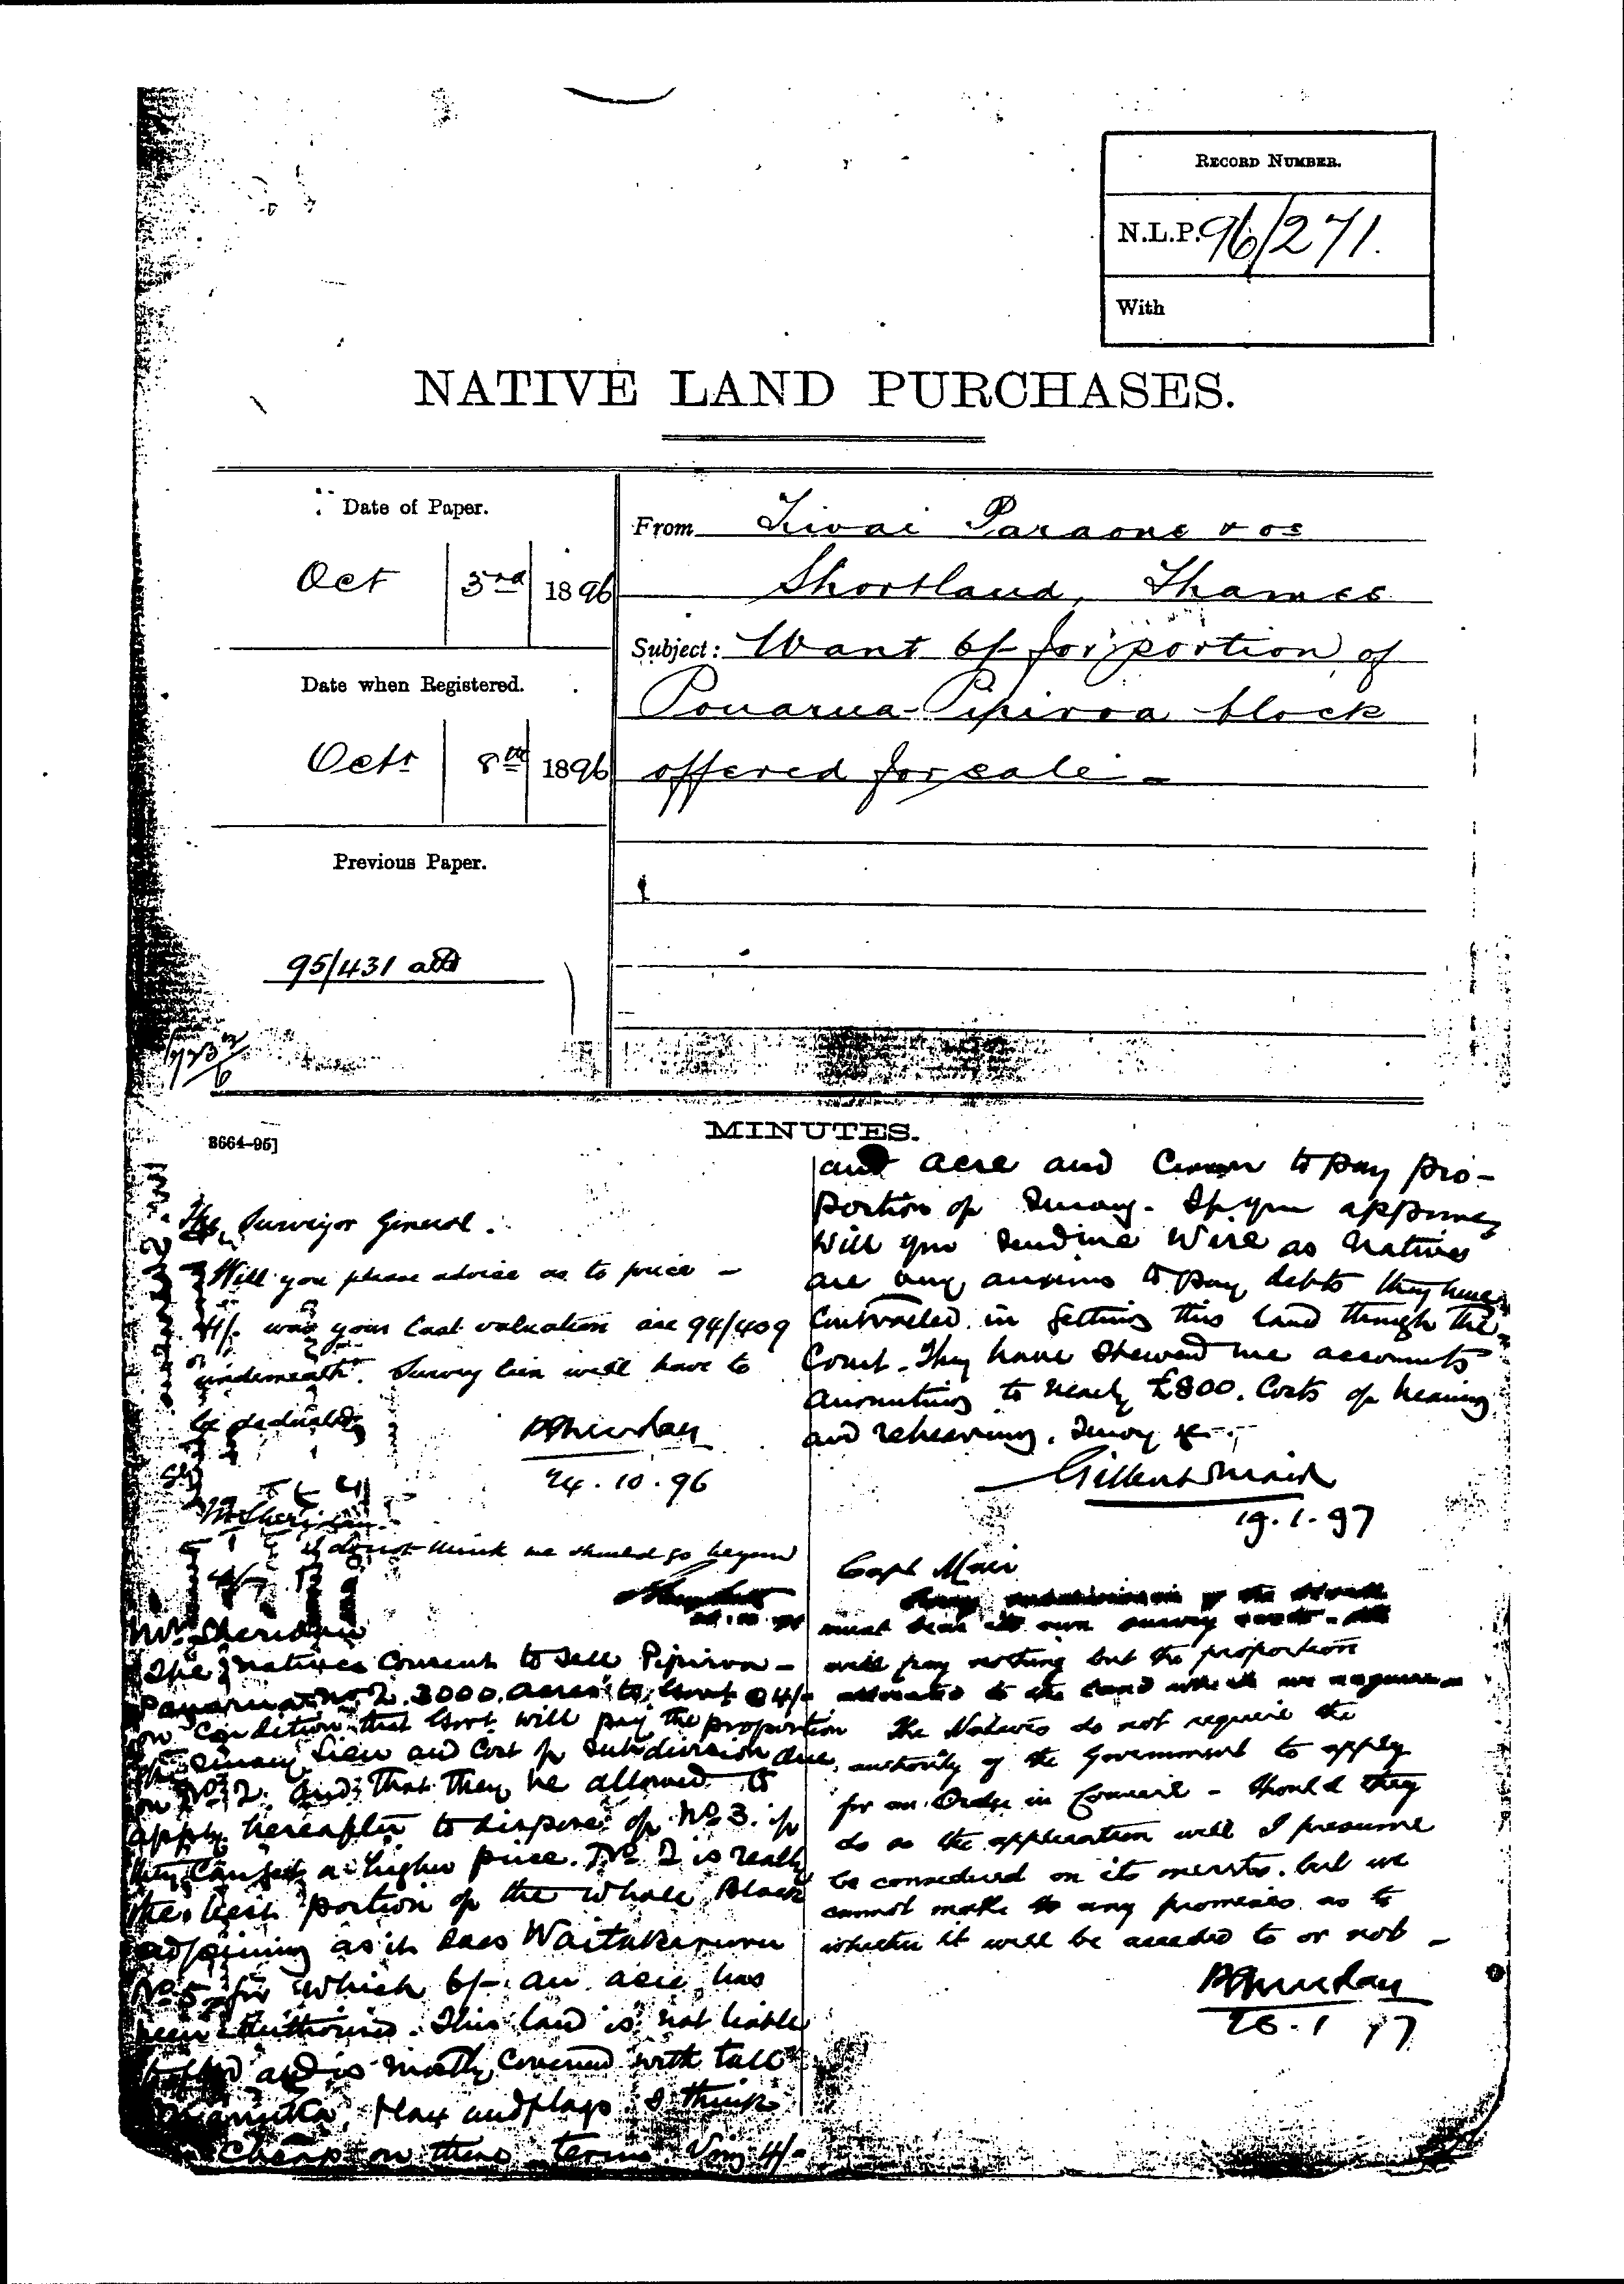 RECORD NUMBER.
N.L.P. 96/271.
With
NATIVE LAND PURCHASES.
Date of Paper.
Oct 3rd 1896
Date when Registered.
Octr 8th 1896
Previous Paper.
95/431
From Tivai Paraone & os
Shortland, Thames
Subject: Want 6/- for portion of
Pouarua-Pipiroa block
offered for sale -
MINUTES.
8664-95]
The Surveyor General.
Will you please advise as to price -
4/- was your last valuation see 94/409
underneath. Survey lien will have to
be deducted
PSheridan
24.10.96
Mr Sheridan
I do not think we should go beyond
4/-
Mr Sheridan
The Natives consent to sell Pipiroa -
Pouarua No 2. 3000 acres to Govt @ 4/-
on condition that Govt will pay the proportion
of Survey lien and cost of subdivision due
on No 2. And that they be allowed to
apply hereafter to dispose of No 3. if
they can get a higher price. No 2 is really
the best portion of the whole Block
adjoining as it does Waitakaruru
No 5 for which 6/- an acre has
been authorised. This land is not liable
to flood and is mostly covered with tall
Manuka, flax and flags. I think
cheap on these terms. Viz 4/-
an acre and Crown to pay pro-
portion of Survey. If you approve
will you send me Wire as Natives
are very anxious to pay debts they have
contracted in getting this land through the
Court. They have shewed me accounts
amounting to nearly £800. Costs of hearing
and rehearing. Survey &c -
Gilbert Mair
19.1.97
Capt Mair
must bear its own survey
will pay nothing but the proportion
allocated to the land which we
The Natives do not require the
authority of the Government to apply
for an Order in Council - Should they
do so the application will I presume
be considered on its merits. but we
cannot make any promises as to
whether it will be acceded to or not -
PSheridan